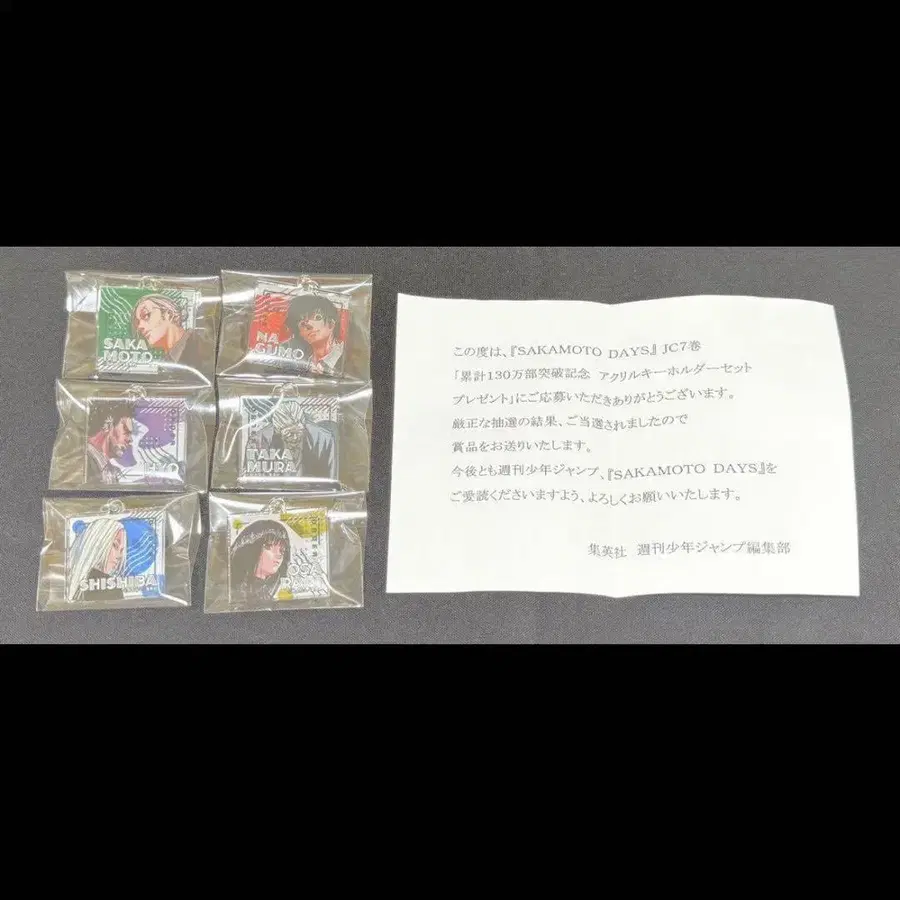 SAKA
MOTO
NA
GUMO
HYO
TAKA
MURA
SHISHIBA
この度は、『SAKAMOTO DAYS』JC7巻
「累計130万部突破記念 アクリルキーホルダーセット
プレゼント」にご応募いただきありがとうございます。
厳正な抽選の結果、ご当選されましたので
賞品をお送りいたします。
今後とも週刊少年ジャンプ、『SAKAMOTO DAYS』を
ご愛読くださいますよう、よろしくお願いいたします。
集英社 週刊少年ジャンプ編集部